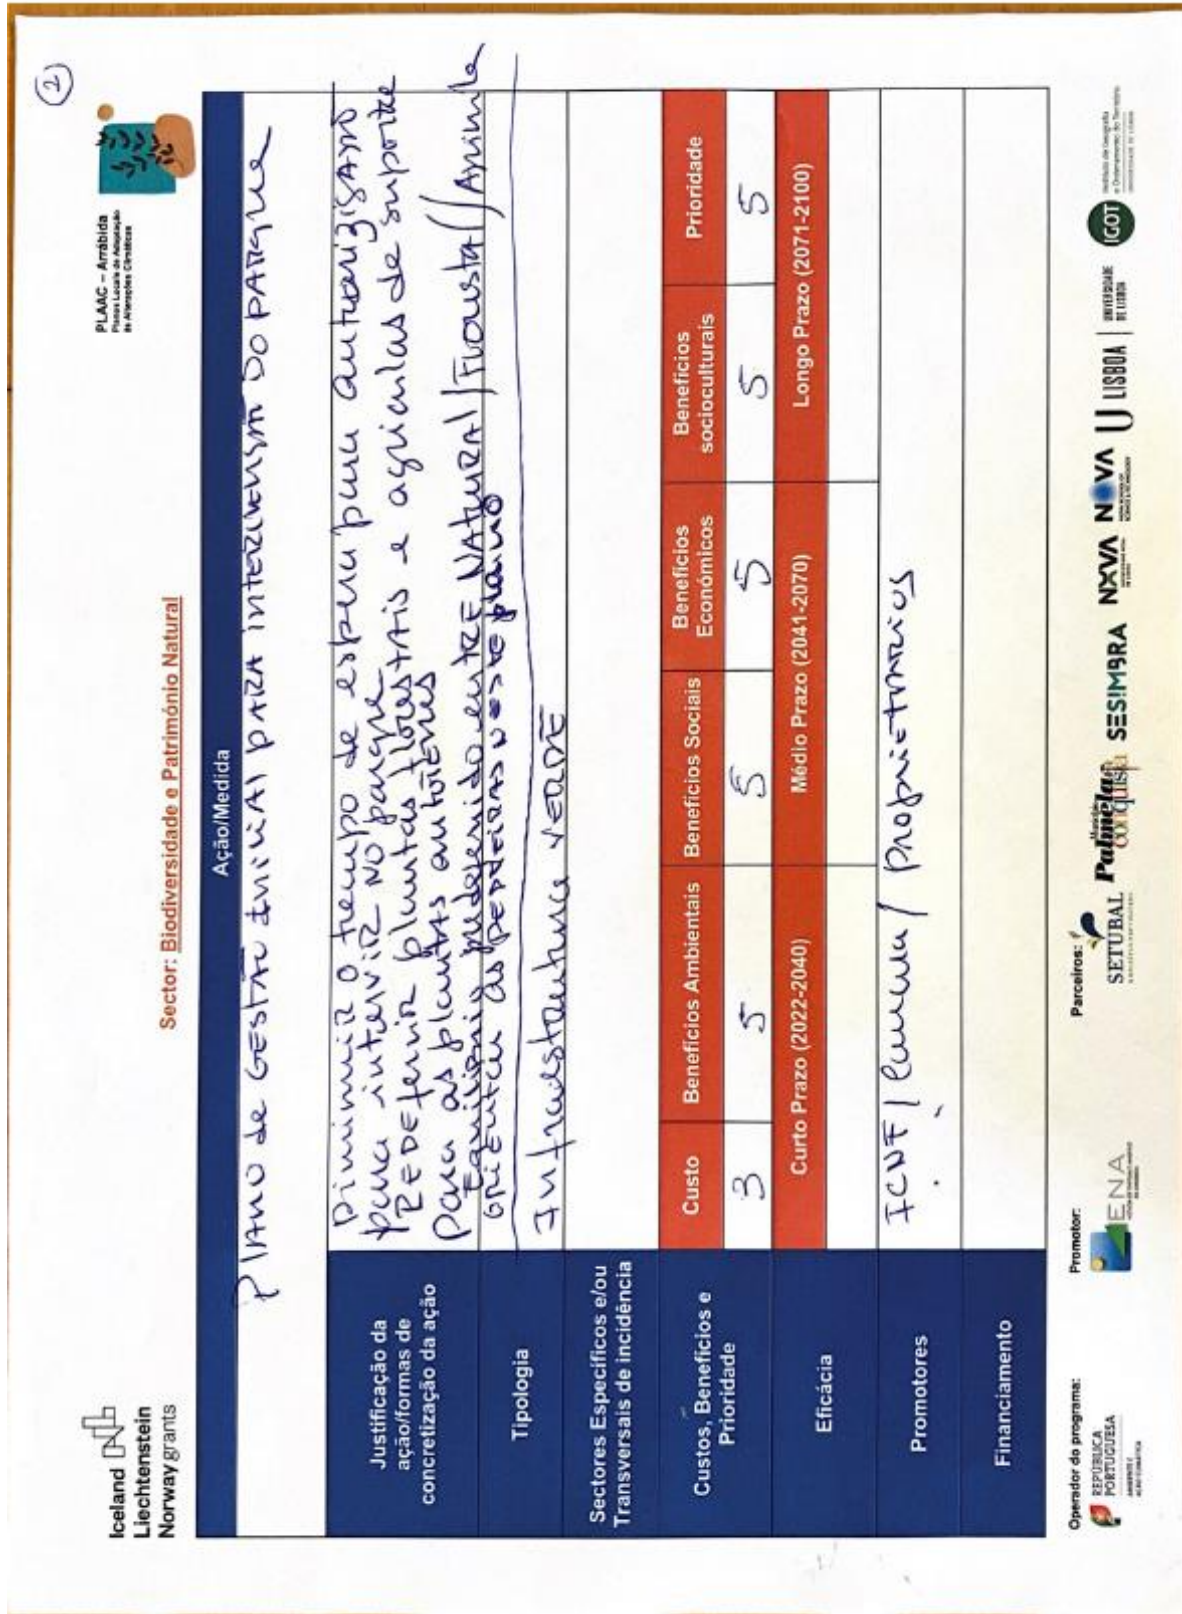 ②
Iceland
Liechtenstein
Norway grants
PLAAC – Arrábida
Planos Locais de Adaptação
às Alterações Climáticas
Sector: Biodiversidade e Património Natural
Ação/Medida
Plano de GESTÃO Inicial PARA intervensão DO PARque
Justificação da
ação/formas de
concretização da ação
Diminuir o tempo de espera para autorização
para intervir NO parque
REDEfinir plantas florestais e agriculas de suporte
para as plantas autoctones
Equilibrio entre NATURAl / Florestal / Animal
Orientar as pedreiras neste plano
Tipologia
Infraestrutura verde
Sectores Específicos e/ou
Transversais de incidência
Custos, Benefícios e
Prioridade
Custo Benefícios Ambientais Benefícios Sociais Benefícios
Económicos Benefícios
socioculturais Prioridade
3 5 5 5 5 5
Eficácia
Curto Prazo (2022-2040) Médio Prazo (2041-2070) Longo Prazo (2071-2100)
Promotores
ICNF / Camara / proprietarios
Financiamento
Operador do programa:
REPÚBLICA
PORTUGUESA
AMBIENTE E
AÇÃO CLIMÁTICA
Promotor:
ENA
Parceiros:
SETUBAL
Município
Palmela
conquista
SESIMBRA
NOVA
NOVA
NOVA SCHOOL OF
SCIENCE & TECHNOLOGY
U LISBOA
UNIVERSIDADE
DE LISBOA
IGOT
Instituto de Geografia
e Ordenamento do Território
UNIVERSIDADE DE LISBOA